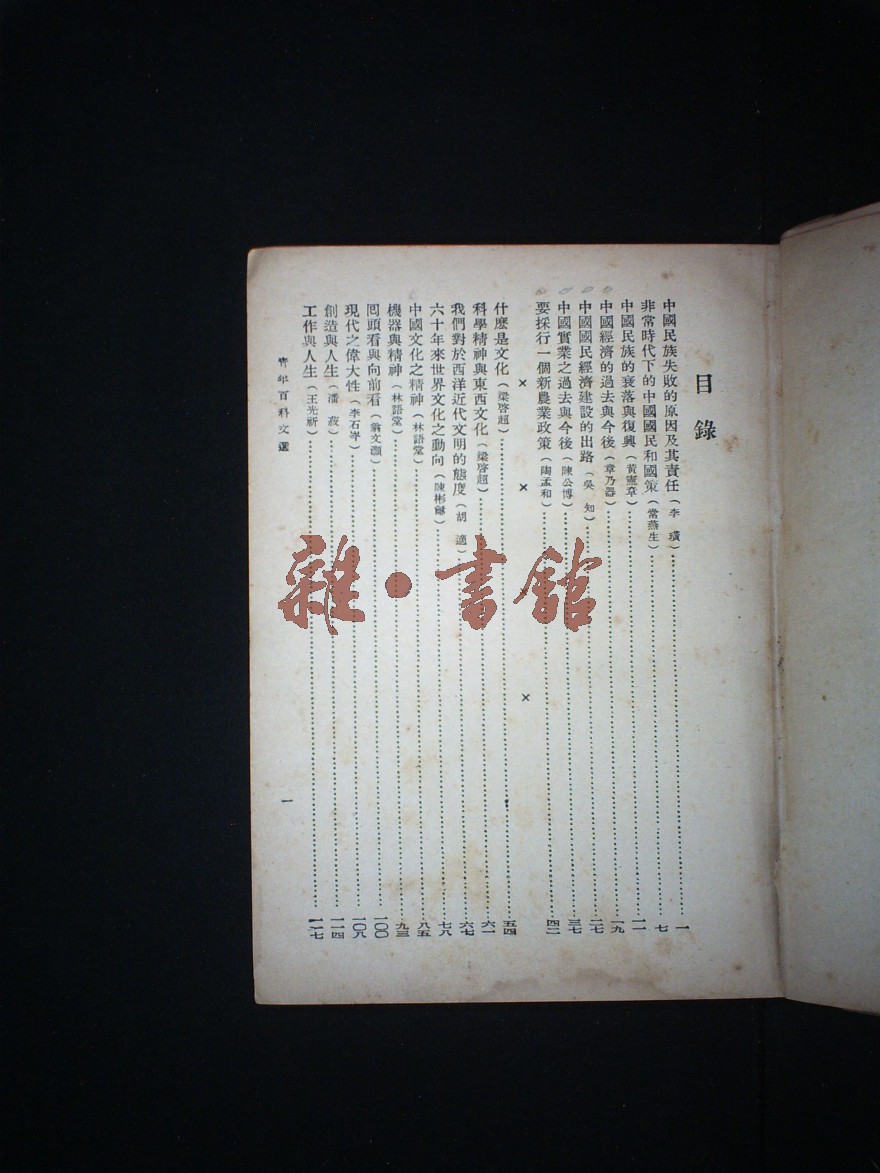 目錄
中國民族失敗的原因及其責任(李 璜)……一
非常時代下的中國國民和國策(常燕生)……七
中國民族的衰落與復興(黃憲章)……一一
中國經濟的過去與今後(章乃器)……一九
中國國民經濟建設的出路(吳 知)……二七
中國實業之過去與今後(陳公博)……三七
要採行一個新農業政策(陶孟和)……四二
× × × ×
什麼是文化(梁啓超)……五四
科學精神與東西文化(梁啓超)……六一
我們對於西洋近代文明的態度(胡 適)……六七
六十年來世界文化之動向(陳彬龢)……七八
中國文化之精神(林語堂)……八五
機器與精神(林語堂)……九三
囘頭看與向前看(翁文灝)……一〇〇
現代之偉大性(李石岑)……一〇八
創造與人生(潘 菽)……一一四
工作與人生(王光祈)……一一七
青年百科文選
一
雜·書館